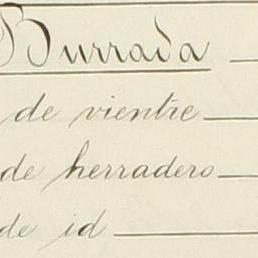 Burrada
de vientre
de herradero
de id